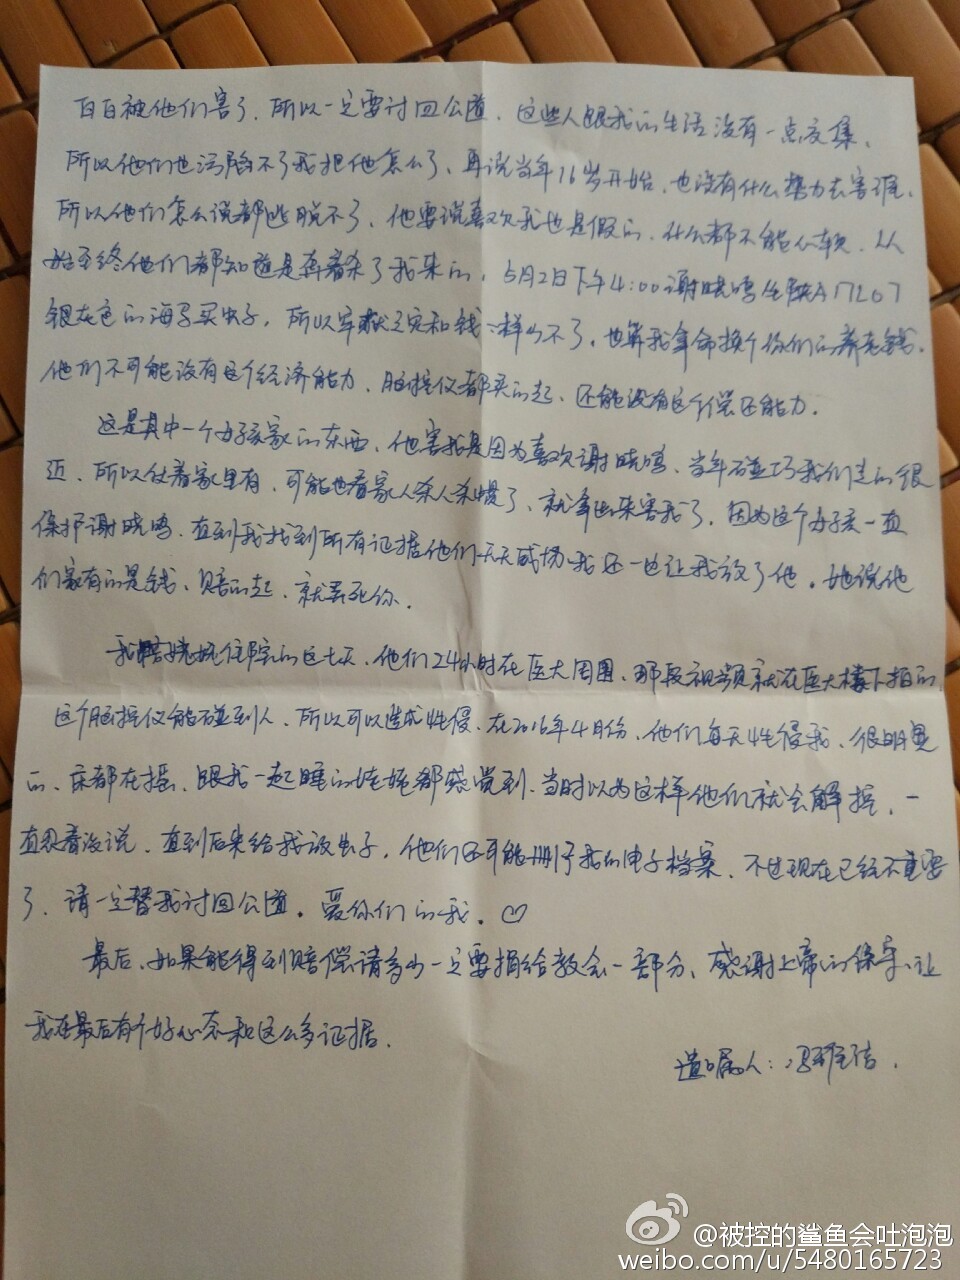 白白被他们害了,所以一定要讨回公道,这些人跟我的生活没有一点交集,
所以他们也污陷不了我把他怎么了,再说当年16岁开始,也没有什么势力去害谁,
所以他们怎么说都逃脱不了,他要说喜欢我也是假的,什么都不能心软,从
始至终他们都知道是奔着杀了我来的,5月2日下午4:00谢晓鸣坐陕A17L07
银灰色的海马买虫子,所以牢狱之灾和钱一样少不了,也算我拿命换个你们的养老钱,
他们不可能没有这个经济能力,脑控仪都买的起,还能没有这个偿还能力.
这是其中一个女孩家的东西,他害我是因为喜欢谢晓鸣,当年碰巧我们走的很
近,所以仗着家里有,可能也看家人杀人杀惯了,就拿出来害我了,因为这个女孩一直
保护谢晓鸣,直到我找到所有证据他们天天威胁我还一直让我放了他,她说他
们家有的是钱,赔的起,就弄死你.
我陪姥姥住院的这七天,他们24小时在医大周围,那段视频就在医大楼下拍的,
这个脑控仪能碰到人,所以可以造成性侵,在2016年4月份,他们每天性侵我,很明显
的,床都在摇,跟我一起睡的姥姥都感觉到,当时以为这样他们就会解控,一
直忍着没说,直到后来给我放虫子,他们还可能删了我的电子档案,不过现在已经不重要
了,请一定替我讨回公道。爱你们的我。♡
最后,如果能得到赔偿请多少一定要捐给教会一部分,感谢上帝的保守,让
我在最后有个好心态和这么多证据.
遗嘱人:冯雅洁.
@被控的鲨鱼会吐泡泡
weibo.com/u/5480165723